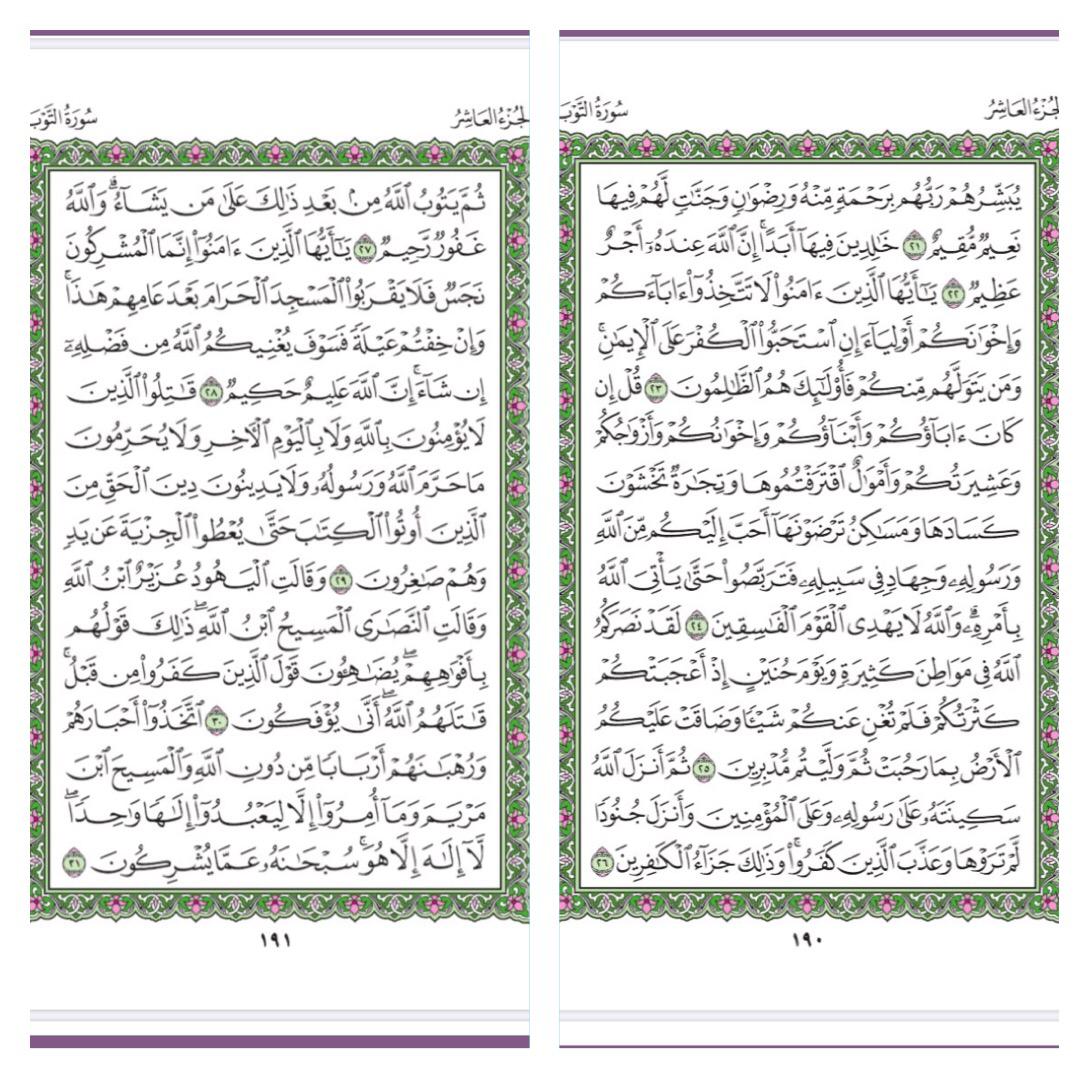 الجُزْءُ العَاشِرُ
سُورَةُ التَّوْبَ
يُبَشِّرُهُمْ رَبُّهُم بِرَحْمَةٍ مِّنْهُ وَرِضْوَانٍ وَجَنَّاتٍ لَّهُمْ فِيهَا
نَعِيمٌ مُّقِيمٌ ٢١ خَالِدِينَ فِيهَا أَبَدًا ۚ إِنَّ اللَّهَ عِندَهُ أَجْرٌ
عَظِيمٌ ٢٢ يَا أَيُّهَا الَّذِينَ ءَامَنُوا لَا تَتَّخِذُوا ءَابَاءَكُمْ
وَإِخْوَانَكُمْ أَوْلِيَاءَ إِنِ اسْتَحَبُّوا الْكُفْرَ عَلَى الْإِيمَانِ ۚ
وَمَن يَتَوَلَّهُم مِّنكُمْ فَأُولَٰئِكَ هُمُ الظَّالِمُونَ ٢٣ قُلْ إِن
كَانَ ءَابَاؤُكُمْ وَأَبْنَاؤُكُمْ وَإِخْوَانُكُمْ وَأَزْوَاجُكُمْ
وَعَشِيرَتُكُمْ وَأَمْوَالٌ اقْتَرَفْتُمُوهَا وَتِجَارَةٌ تَخْشَوْنَ
كَسَادَهَا وَمَسَاكِنُ تَرْضَوْنَهَا أَحَبَّ إِلَيْكُم مِّنَ اللَّهِ
وَرَسُولِهِ وَجِهَادٍ فِي سَبِيلِهِ فَتَرَبَّصُوا حَتَّىٰ يَأْتِيَ اللَّهُ
بِأَمْرِهِ ۗ وَاللَّهُ لَا يَهْدِي الْقَوْمَ الْفَاسِقِينَ ٢٤ لَقَدْ نَصَرَكُمُ
اللَّهُ فِي مَوَاطِنَ كَثِيرَةٍ وَيَوْمَ حُنَيْنٍ إِذْ أَعْجَبَتْكُمْ
كَثْرَتُكُمْ فَلَمْ تُغْنِ عَنكُمْ شَيْئًا وَضَاقَتْ عَلَيْكُمُ
الْأَرْضُ بِمَا رَحُبَتْ ثُمَّ وَلَّيْتُم مُّدْبِرِينَ ٢٥ ثُمَّ أَنزَلَ اللَّهُ
سَكِينَتَهُ عَلَىٰ رَسُولِهِ وَعَلَى الْمُؤْمِنِينَ وَأَنزَلَ جُنُودًا
لَّمْ تَرَوْهَا وَعَذَّبَ الَّذِينَ كَفَرُوا ۚ وَذَٰلِكَ جَزَاءُ الْكَافِرِينَ ٢٦
١٩٠
الجُزْءُ العَاشِرُ
سُورَةُ التَّوْبَ
ثُمَّ يَتُوبُ اللَّهُ مِن بَعْدِ ذَٰلِكَ عَلَىٰ مَن يَشَاءُ ۗ وَاللَّهُ
غَفُورٌ رَّحِيمٌ ٢٧ يَا أَيُّهَا الَّذِينَ ءَامَنُوا إِنَّمَا الْمُشْرِكُونَ
نَجَسٌ فَلَا يَقْرَبُوا الْمَسْجِدَ الْحَرَامَ بَعْدَ عَامِهِمْ هَٰذَا ۚ
وَإِنْ خِفْتُمْ عَيْلَةً فَسَوْفَ يُغْنِيكُمُ اللَّهُ مِن فَضْلِهِ
إِن شَاءَ ۚ إِنَّ اللَّهَ عَلِيمٌ حَكِيمٌ ٢٨ قَاتِلُوا الَّذِينَ
لَا يُؤْمِنُونَ بِاللَّهِ وَلَا بِالْيَوْمِ الْآخِرِ وَلَا يُحَرِّمُونَ
مَا حَرَّمَ اللَّهُ وَرَسُولُهُ وَلَا يَدِينُونَ دِينَ الْحَقِّ مِنَ
الَّذِينَ أُوتُوا الْكِتَابَ حَتَّىٰ يُعْطُوا الْجِزْيَةَ عَن يَدٍ
وَهُمْ صَاغِرُونَ ٢٩ وَقَالَتِ الْيَهُودُ عُزَيْرٌ ابْنُ اللَّهِ
وَقَالَتِ النَّصَارَى الْمَسِيحُ ابْنُ اللَّهِ ۖ ذَٰلِكَ قَوْلُهُم
بِأَفْوَاهِهِمْ ۖ يُضَاهِئُونَ قَوْلَ الَّذِينَ كَفَرُوا مِن قَبْلُ ۚ
قَاتَلَهُمُ اللَّهُ ۖ أَنَّىٰ يُؤْفَكُونَ ٣٠ اتَّخَذُوا أَحْبَارَهُمْ
وَرُهْبَانَهُمْ أَرْبَابًا مِّن دُونِ اللَّهِ وَالْمَسِيحَ ابْنَ
مَرْيَمَ وَمَا أُمِرُوا إِلَّا لِيَعْبُدُوا إِلَٰهًا وَاحِدًا ۖ
لَّا إِلَٰهَ إِلَّا هُوَ ۚ سُبْحَانَهُ عَمَّا يُشْرِكُونَ ٣١
١٩١